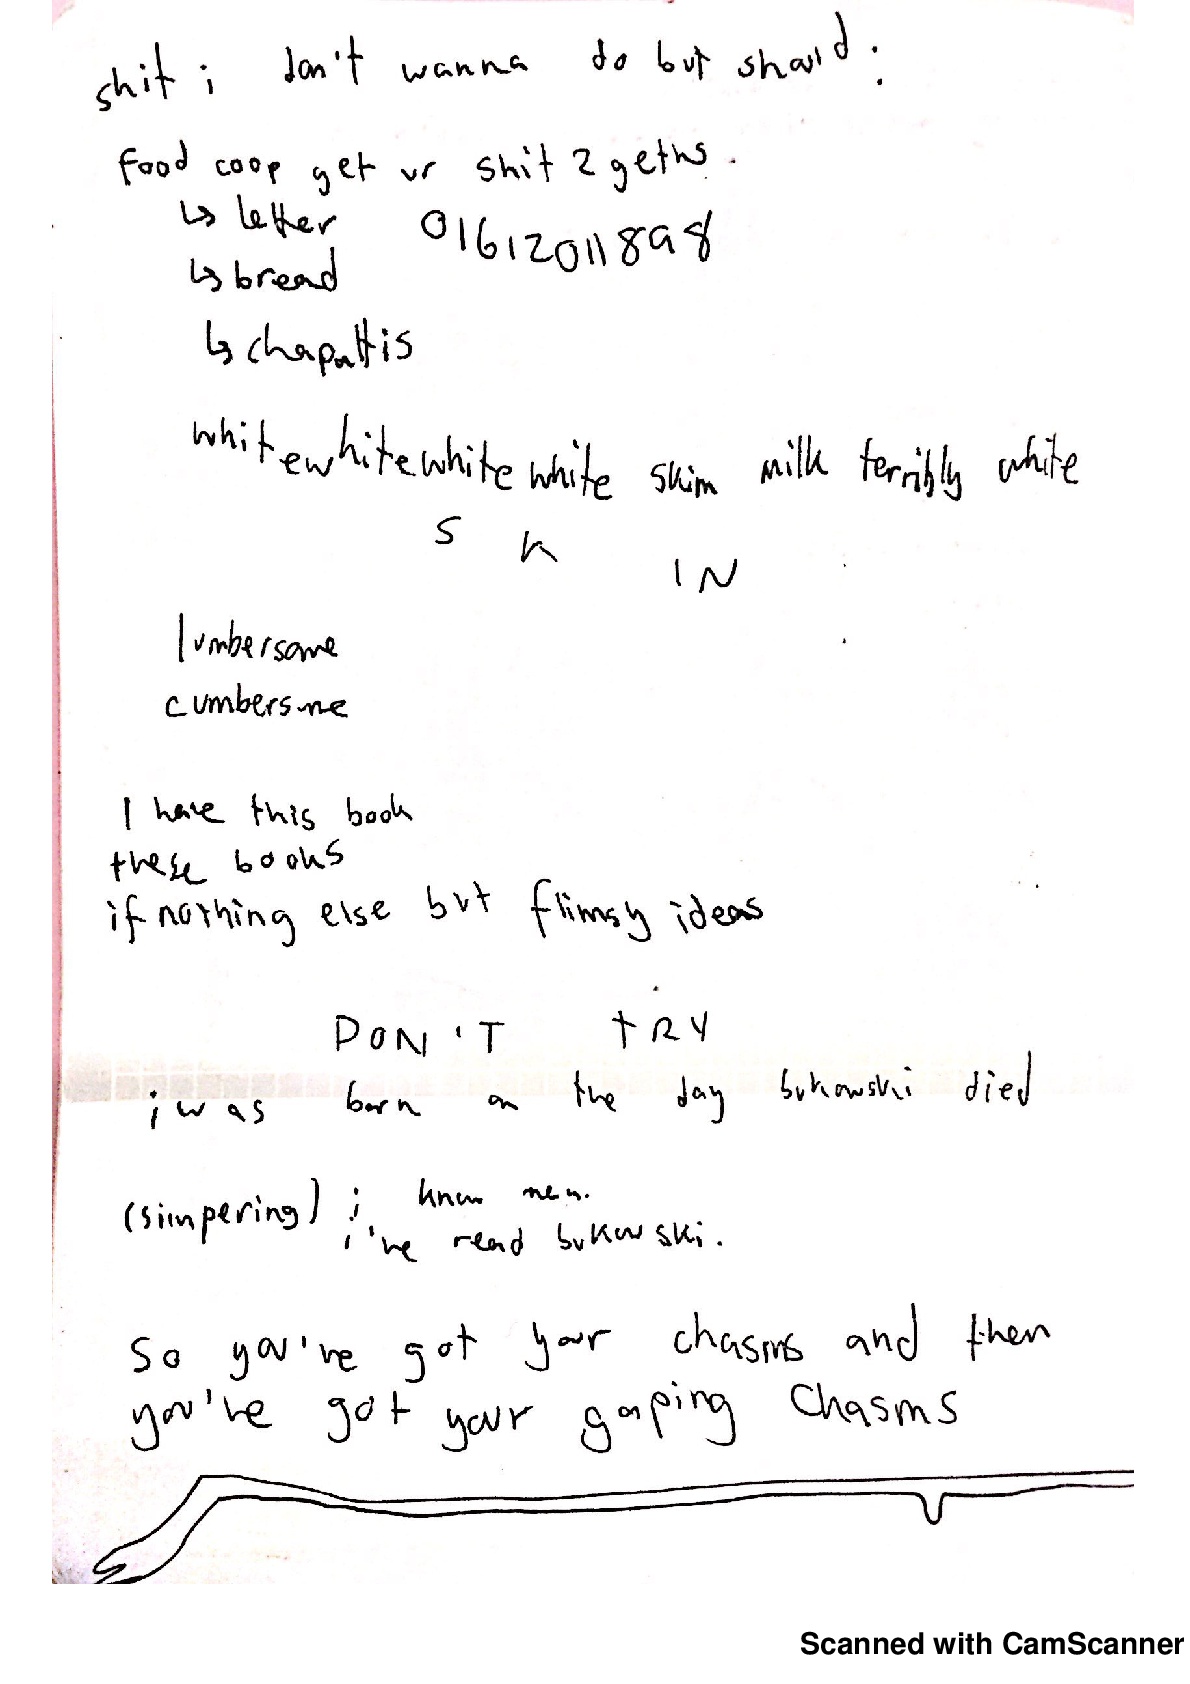 shit i don't wanna do but should:
food coop get ur shit 2 gethr.
↳ letter 01612011898
↳ bread
↳ chapattis
whitewhitewhite white skim milk terribly white
S K IN
lumbersome
cumbersome
I have this book
these books
if nothing else but flimsy ideas
DON'T TRY
i was born on the day bukowski died
(simpering) i know men.
i've read bukowski.
So you've got your chasms and then
you've got your gaping chasms
Scanned with CamScanner